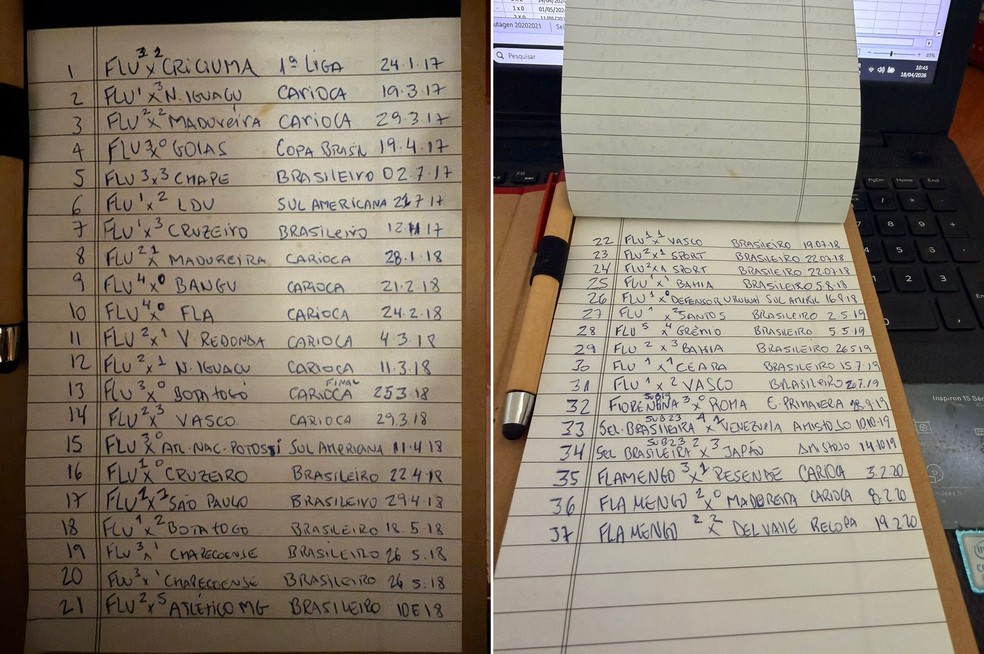 1 FLU 3x2 CRICIUMA 1ª LIGA 24.1.17
2 FLU 1x3 N. IGUAÇU CARIOCA 19.3.17
3 FLU 2x2 MADUREIRA CARIOCA 29.3.17
4 FLU 3x0 GOIAS COPA BRASIL 19.4.17
5 FLU 3x3 CHAPE BRASILEIRO 02.7.17
6 FLU 1x2 LDU SUL AMERICANA 21.7.17
7 FLU 1x3 CRUZEIRO BRASILEIRO 12.11.17
8 FLU 2x1 MADUREIRA CARIOCA 28.1.18
9 FLU 4x0 BANGU CARIOCA 21.2.18
10 FLU 4x0 FLA CARIOCA 24.2.18
11 FLU 2x1 V REDONDA CARIOCA 4.3.18
12 FLU 2x1 N. IGUAÇU CARIOCA 11.3.18
13 FLU 3x0 BOTAFOGO CARIOCA FINAL 25.3.18
14 FLU 2x3 VASCO CARIOCA 29.3.18
15 FLU 3x0 ATL. NAC. POTOSSI SUL AMERICANA 11.4.18
16 FLU 1x0 CRUZEIRO BRASILEIRO 22.4.18
17 FLU 1x1 SÃO PAULO BRASILEIRO 29.4.18
18 FLU 1x2 BOTAFOGO BRASILEIRO 18.5.18
19 FLU 3x1 CHAPECOENSE BRASILEIRO 26 5.18
20 FLU 3x1 CHAPECOENSE BRASILEIRO 26 5.18
21 FLU 2x5 ATLÉTICO MG BRASILEIRO 18
22 FLU 1x1 VASCO BRASILEIRO 19.07.18
23 FLU 2x1 SPORT BRASILEIRO 22.07.18
24 FLU 2x1 SPORT BRASILEIRO 22.07.18
25 FLU 1x1 BAHIA BRASILEIRO 5.8.18
26 FLU 1x0 DEFENSOR SUL 16.8.18
27 FLU 1x2 SANTOS BRASILEIRO 2.5.19
28 FLU 5x4 GRÊMIO BRASILEIRO 5.5.19
29 FLU 2x3 BAHIA BRASILEIRO 26.5.19
30 FLU 1x1 CEARA BRASILEIRO 15.7.19
31 FLU 1x2 VASCO BRASILEIRO 20.7.19
32 FIORENTINA SUB19 3x0 ROMA E. PRIMAVERA 28.9.19
33 SEL. BRASILEIRA SUB23 4x1 VENEZUELA AMISTOSO 10.10.19
34 SEL BRASILEIRA SUB23 2x3 JAPÃO AMISTOSO 14.10.19
35 FLAMENGO 3x1 RESENDE CARIOCA 3.2.20
36 FLAMENGO 2x0 MADUREIRA CARIOCA 8.2.20
37 FLAMENGO 2x2 DEL VALLE RECOPA 19.2.20
1 x 0 01/05/202
Pesquisar
10:45
18/04/2026
PgDn Home End
Inspiron 15